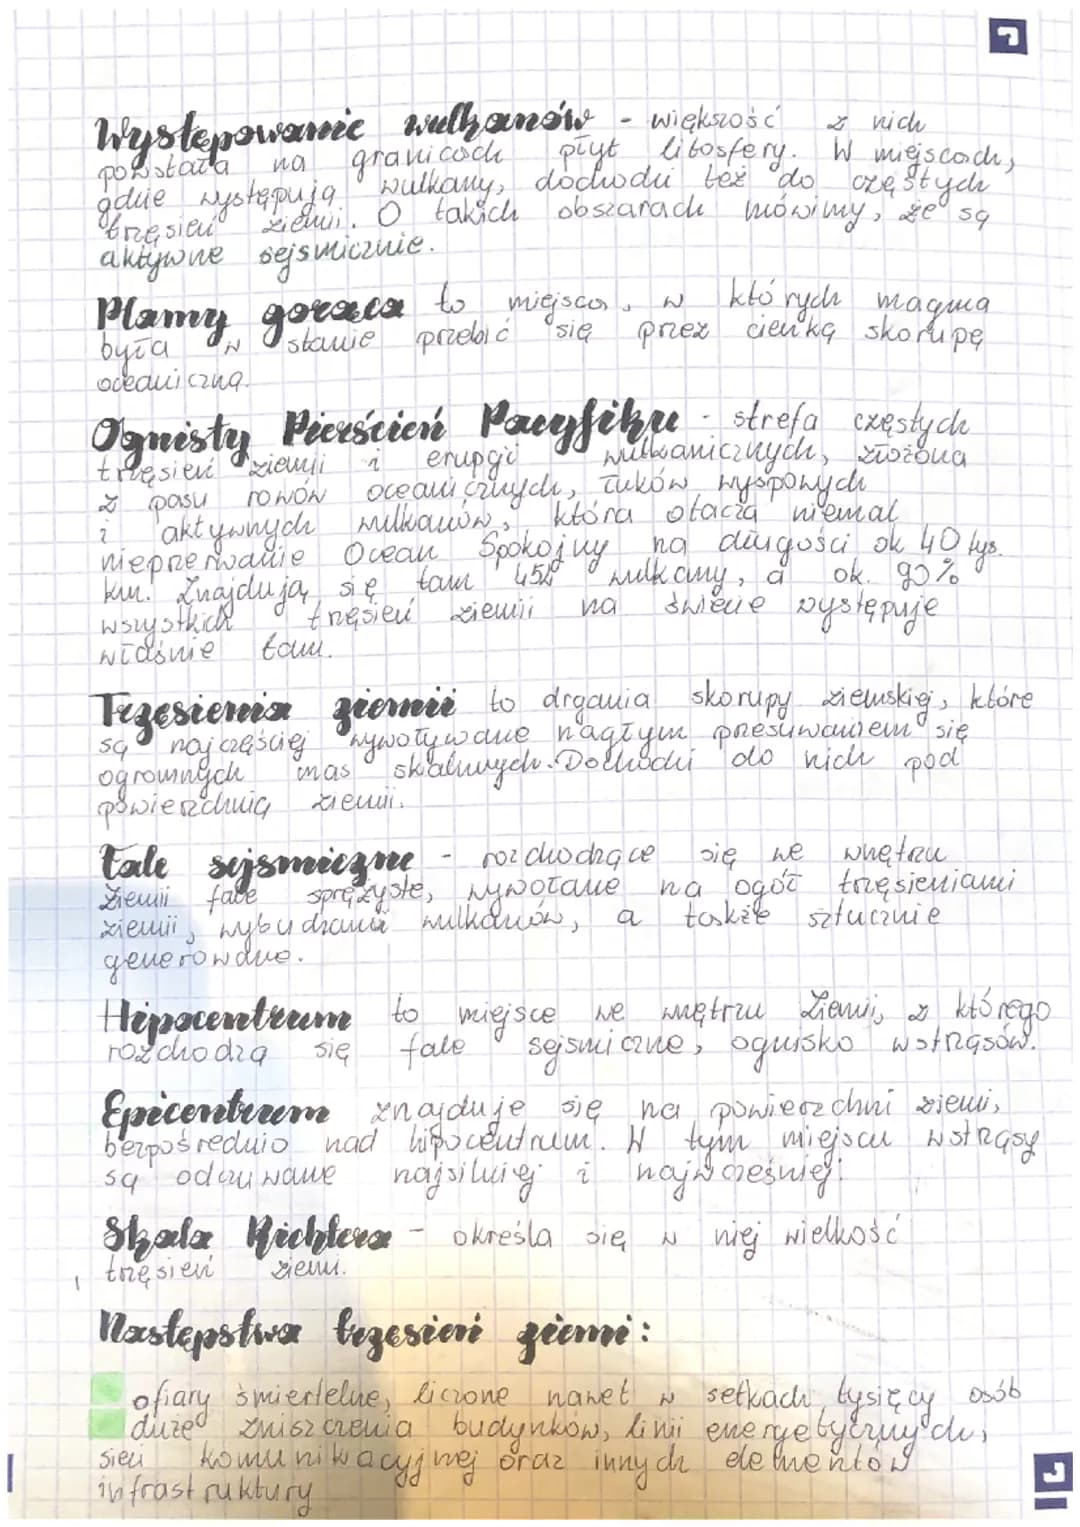 Występowanie wulkanów - większość z nich
powstała na granicach płyt litosfery. W miejscach,
gdzie występują wulkany, dochodzi też do częstych
trzęsień ziemi. O takich obszarach mówimy, że są
aktywne sejsmicznie.
Plamy gorąca to miejsca, w których magma
była w stanie przebić się przez cienką skorupę
oceaniczną.
Ognisty Pierścień Pacyfiku - strefa częstych
trzęsień ziemii i erupcji wulkanicznych, złożona
z pasu rowów oceanicznych, łuków wyspowych
i aktywnych wulkanów, która otacza niemal
nieprzerwanie Ocean Spokojny na długości ok 40 tys.
km. Znajdują się tam 452 wulkany, a ok. 90%
wszystkich trzęsień ziemii na świecie występuje
właśnie tam.
Trzęsienia ziemii to drgania skorupy ziemskiej, które
są najczęściej wywoływane nagłym przesuwaniem się
ogromnych mas skalnych. Dochodzi do nich pod
powierzchnią ziemi.
Fale sejsmiczne - rozchodzące się we wnętrzu
Ziemii fale sprężyste, wywołane na ogół trzęsieniami
ziemii, wybuchami wulkanów, a także sztucznie
generowane.
Hipocentrum to miejsce we wnętrzu Ziemii, z którego
rozchodzą się fale sejsmiczne, ognisko wstrząsów.
Epicentrum znajduje się na powierzchni ziemi,
bezpośrednio nad hipocentrum. W tym miejscu wstrząsy
są odczuwane najsilniej i najwcześniej.
Skala Richtera - określa się w niej wielkość
trzęsień ziemi.
Następstwa trzęsień ziemi:
ofiary śmiertelne, liczone nawet w setkach tysięcy osób
duże zniszczenia budynków, linii energetycznych,
sieci komunikacyjnej oraz innych elementów
infrastruktury